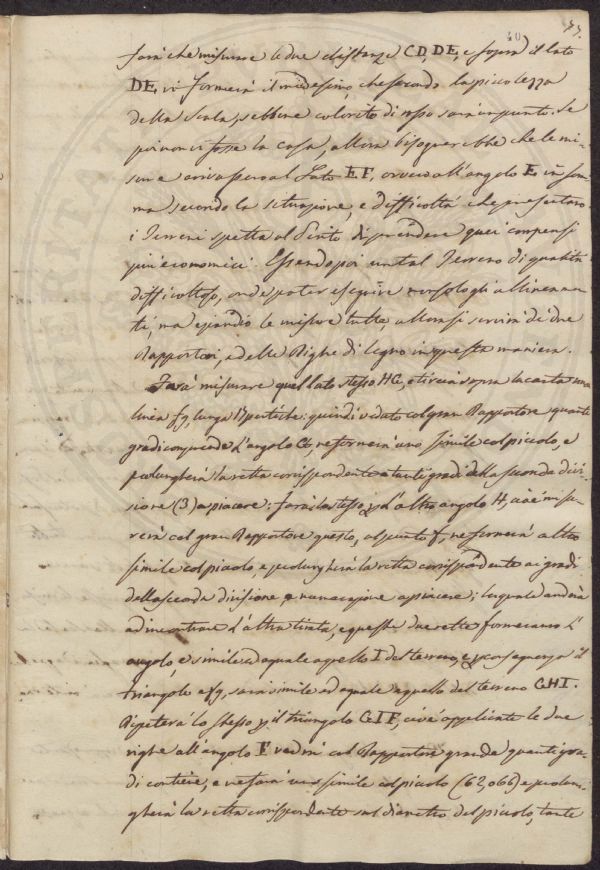 40 77.
farà che misurare le due distanze CD, DE, e sopra il lato
DE, vi formerà il medesimo che secondo la piccolezza
della Scala, sebbene colorito di rosso sarà un punto. Se
poi non vi fosse la casa, allora bisognerebbe che le mi-
sure arrivassero al Lato EF, ovvero all'angolo E in som-
ma secondo la situazione, e difficoltà che presentano
i Terreni spetta al Perito di prendere quei compensi
più economici. Essendo poi un tal Terreno di qualità
difficoltoso, onde poter eseguire non solo gli allineamen-
ti, ma eziandio le misure tutte, allora si servirà di due
Rapportori, e delle Righe di legno in questa maniera.
Farà misurare quel lato stesso HG, e tirerà sopra la carta una
linea fg, lunga 17 pertiche: quindi veduto col gran Rapportore quanti
gradi comprende l'angolo G, ne formerà uno simile col piccolo, e
prolungherà la retta corrispondente a tanti gradi della seconda divi-
sione (3) a piacere: farà lo stesso per l'altro angolo H, cioè misu-
rerà col gran Rapportore questo, al punto f, ne formerà altro
simile col piccolo, e prolungherà la retta corrispondente ai gradi
della seconda divisione e numerazione a piacere; la quale andrà
ad incontrare l'altra tirata, e queste due rette formeranno l'
angolo, e simile ed uguale a quello I del terreno, e per conseguenza il
triangolo efg, sarà simile ed uguale a quello del terreno GHI.
Ripeterà lo stesso per il triangolo GIF, cioè applicate le due
righe all'angolo F vedrà col Rapportore grande quanti gra-
di contiene, e ne farà uno simile col piccolo (62, 066) e prolun-
gherà la retta corrispondente sul diametro del piccolo, tante